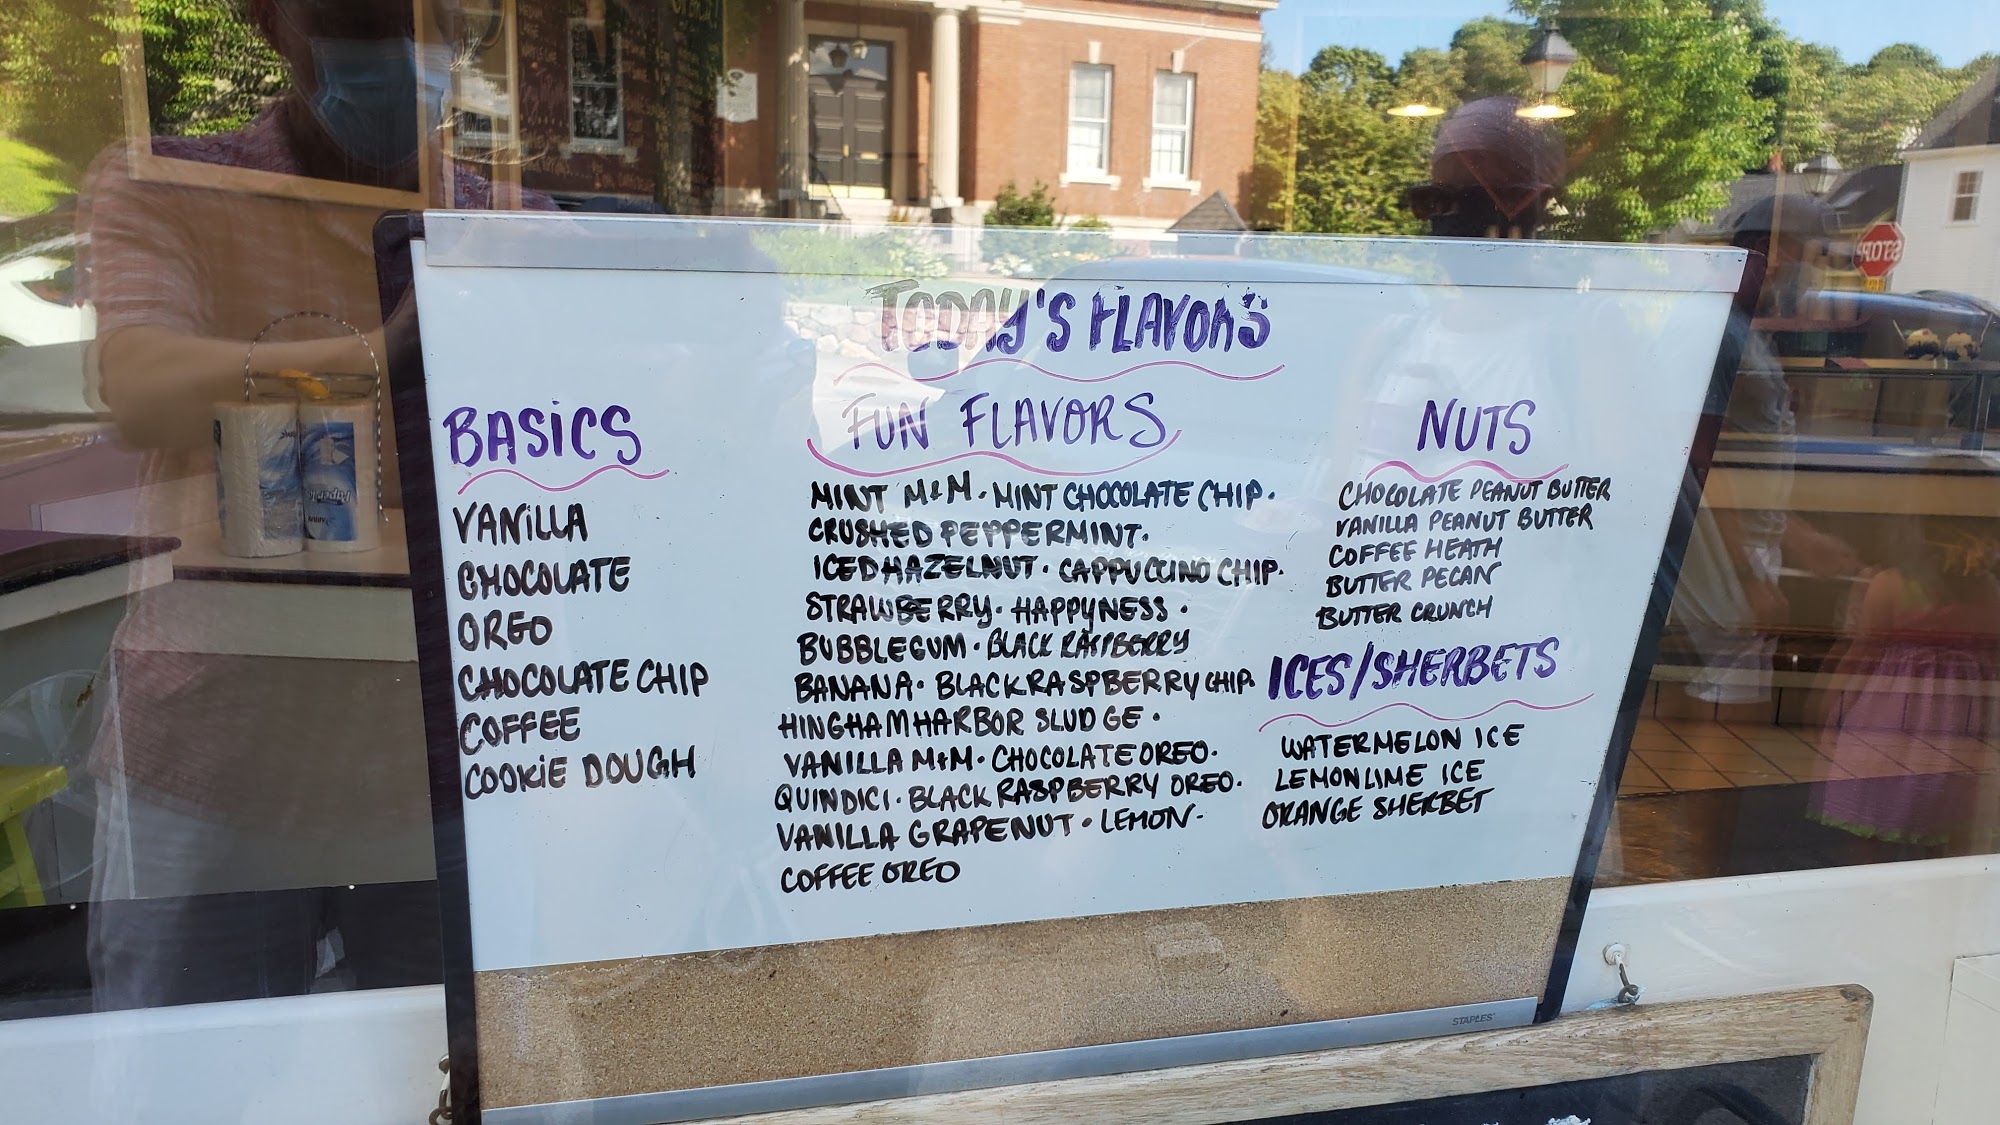 TODAY'S FLAVORS
BASICS
VANILLA
CHOCOLATE
OREO
CHOCOLATE CHIP
COFFEE
COOKIE DOUGH
FUN FLAVORS
MINT M&M · MINT CHOCOLATE CHIP ·
CRUSHED PEPPERMINT ·
ICED HAZELNUT · CAPPUCCINO CHIP ·
STRAWBERRY · HAPPYNESS ·
BUBBLEGUM · BLACK RASPBERRY
BANANA · BLACK RASPBERRY CHIP ·
HINGHAM HARBOR SLUDGE ·
VANILLA M&M · CHOCOLATE OREO ·
QUINDICI · BLACK RASPBERRY OREO ·
VANILLA GRAPENUT · LEMON ·
COFFEE OREO
NUTS
CHOCOLATE PEANUT BUTTER
VANILLA PEANUT BUTTER
COFFEE HEATH
BUTTER PECAN
BUTTER CRUNCH
ICES/SHERBETS
WATERMELON ICE
LEMONLIME ICE
ORANGE SHERBET
STAPLES
STOP